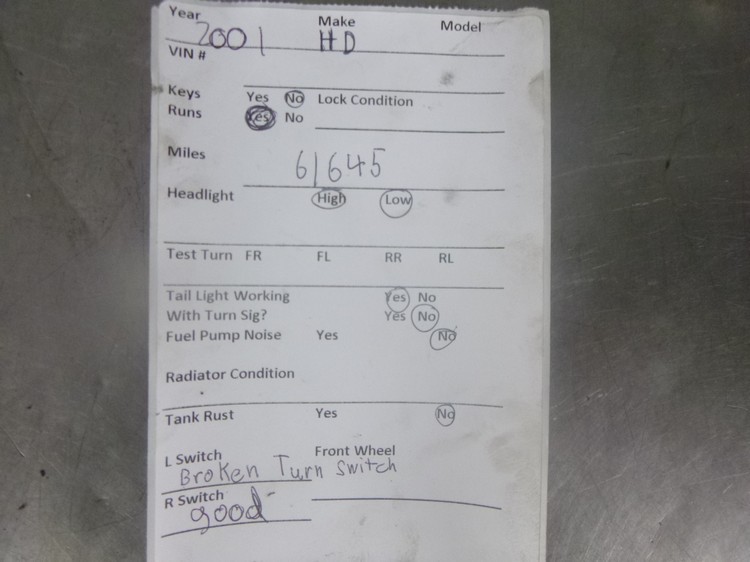 Year Make Model
2001 HD
VIN #
Keys Yes No Lock Condition
Runs Yes No
Miles 61645
Headlight High Low
Test Turn FR FL RR RL
Tail Light Working Yes No
With Turn Sig? Yes No
Fuel Pump Noise Yes No
Radiator Condition
Tank Rust Yes No
L Switch Front Wheel
Broken Turn Switch
R Switch
good